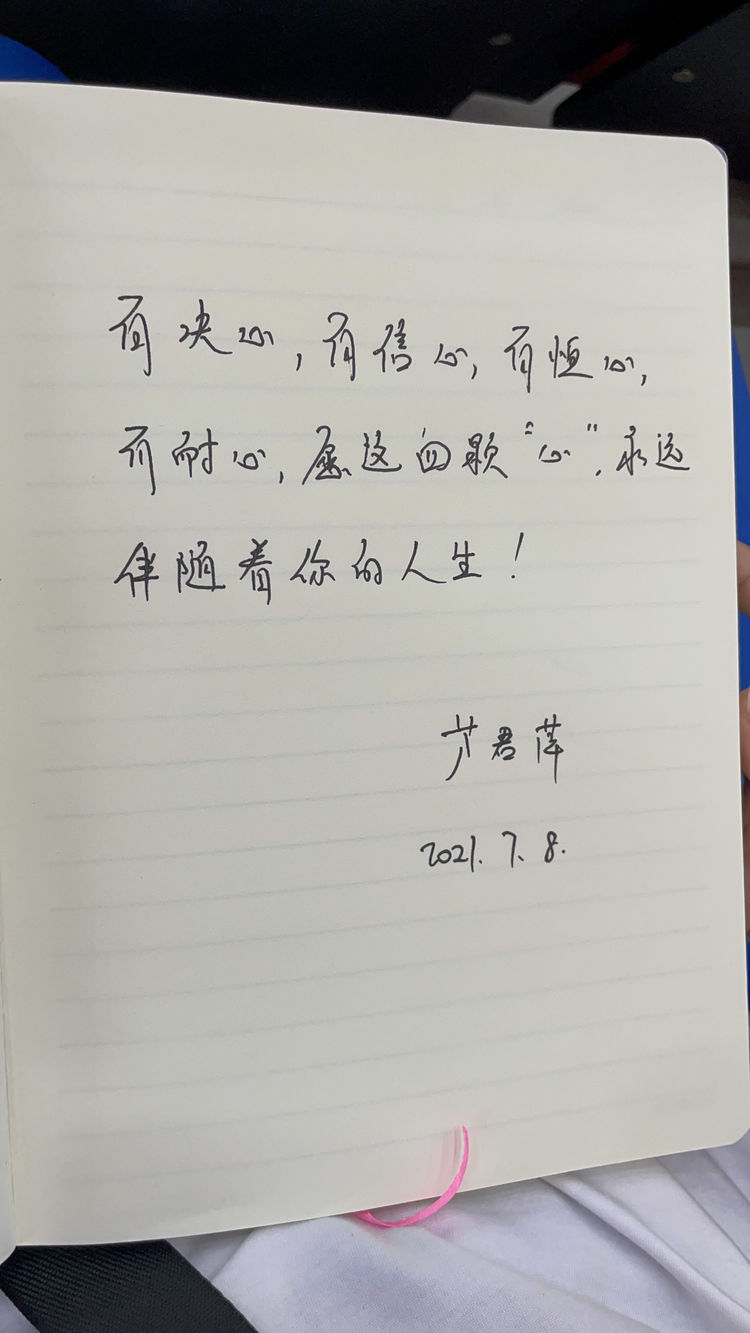 有决心,有信心,有恒心,
有耐心,愿这四颗“心”,永远
伴随着你的人生!
芦君萍
2021.7.8.